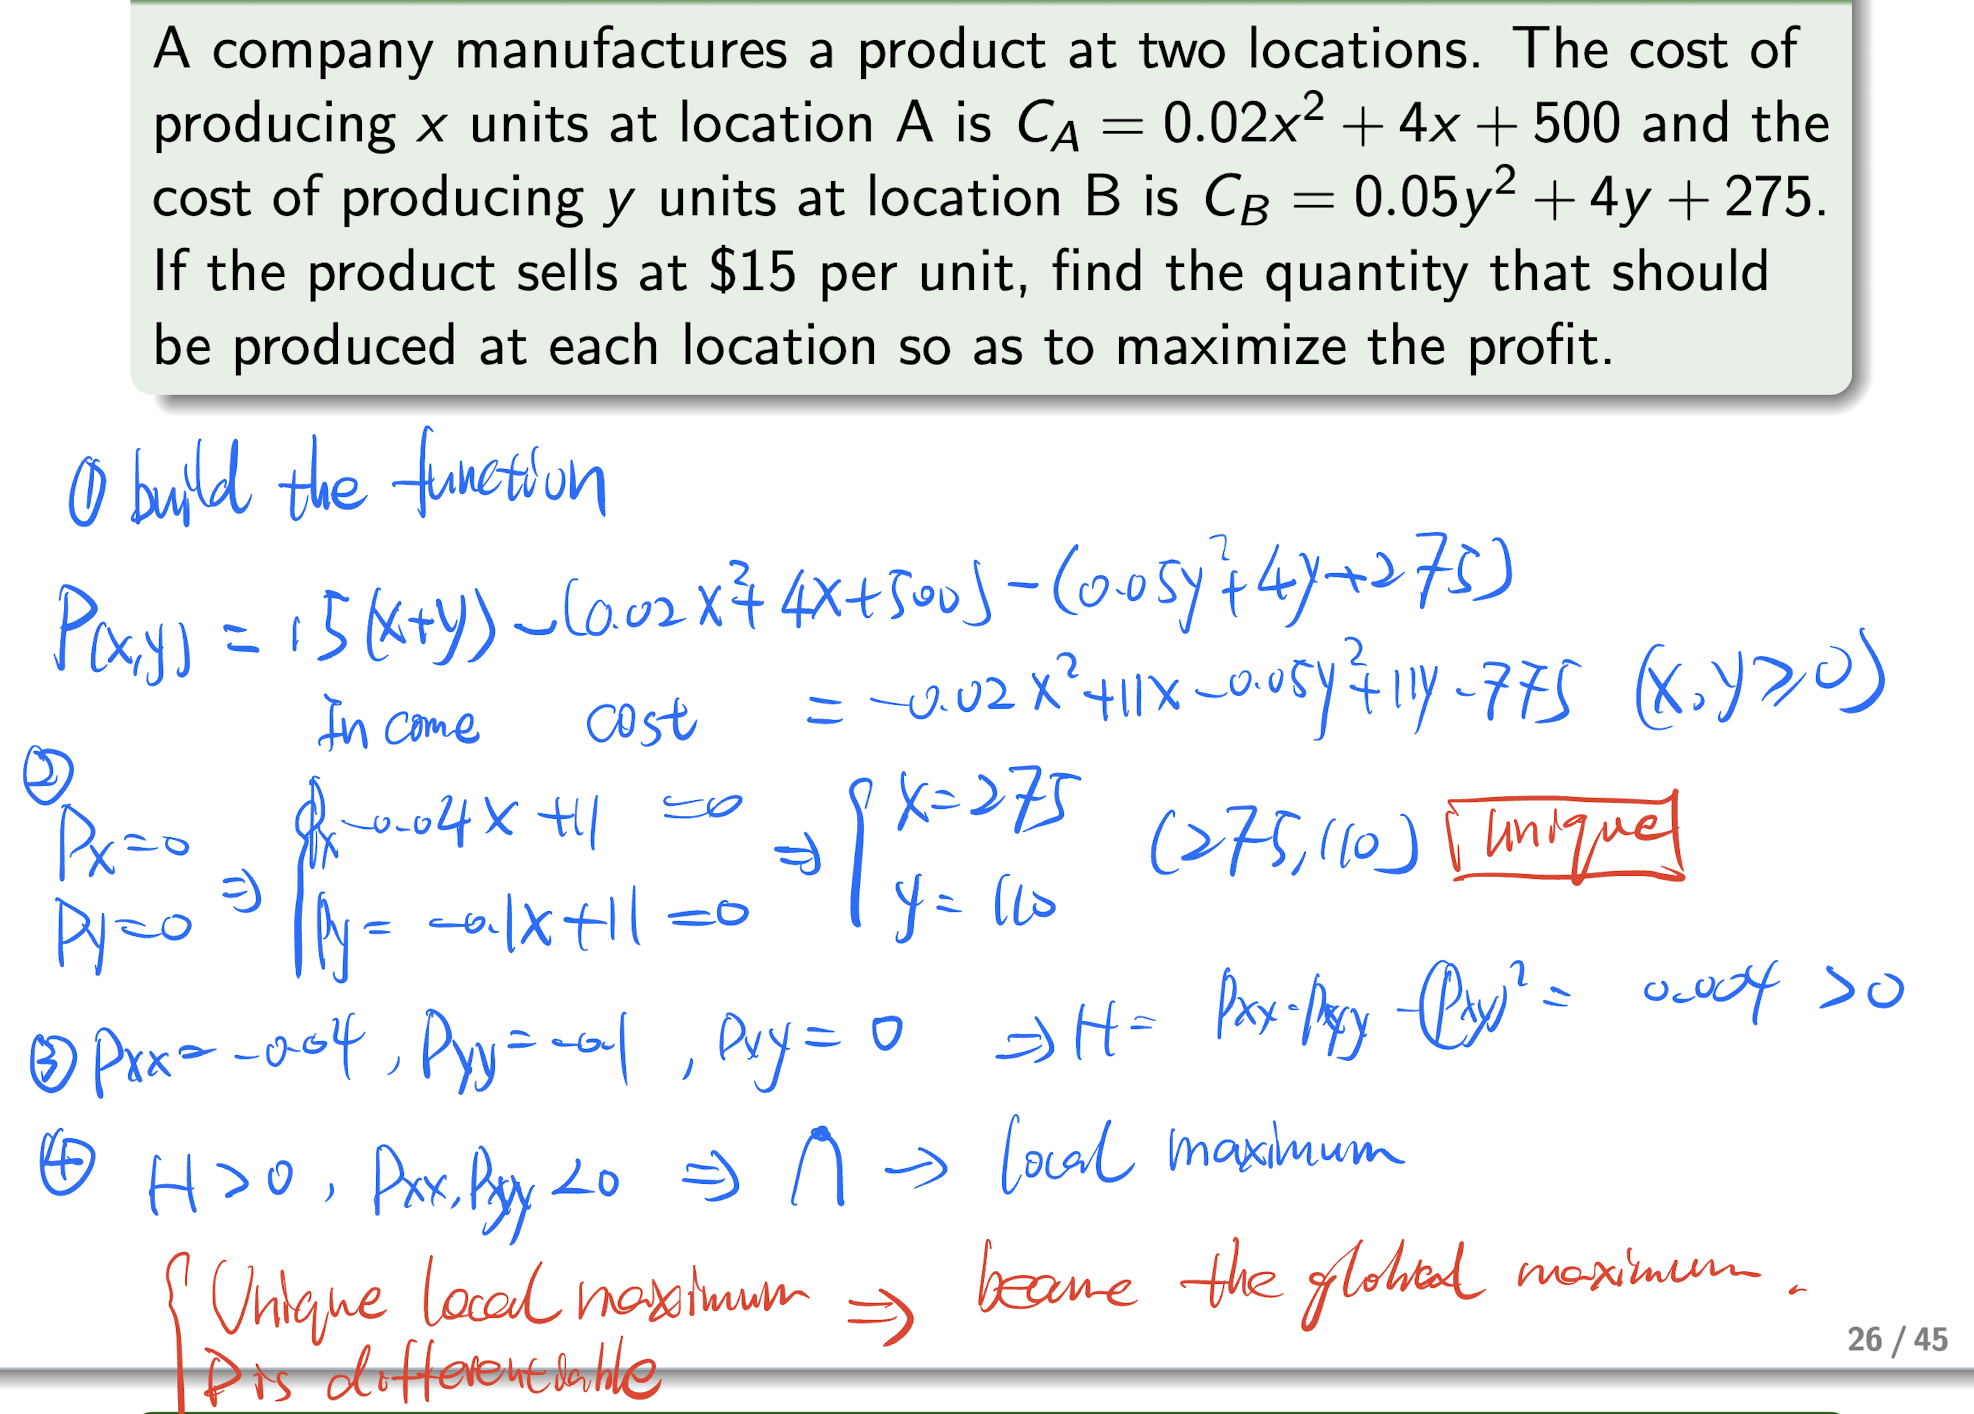 A company manufactures a product at two locations. The cost of
producing x units at location A is C_A = 0.02x² + 4x + 500 and the
cost of producing y units at location B is C_B = 0.05y² + 4y + 275.
If the product sells at $15 per unit, find the quantity that should
be produced at each location so as to maximize the profit.
① build the function
P(x,y) = 15(x+y) - (0.02x²+4x+500) - (0.05y²+4y+275)
Income cost = -0.02x²+11x-0.05y²+11y-775 (x,y≥0)
②
Px=0 ⇒ { Px -0.04x+11 =0 ⇒ { x=275 (275,110) unique
Py=0 Py= -0.1x+11=0 y=110
③ Pxx=-0.04, Pyy=-0.1, Pxy=0 ⇒ H= Pxx·Pyy-(Pxy)²= 0.004 >0
④ H>0, Pxx,Pyy<0 ⇒ ∩ → local maximum
{ Unique local maximum ⇒ became the global maximum.
P is differentiable
26 / 45